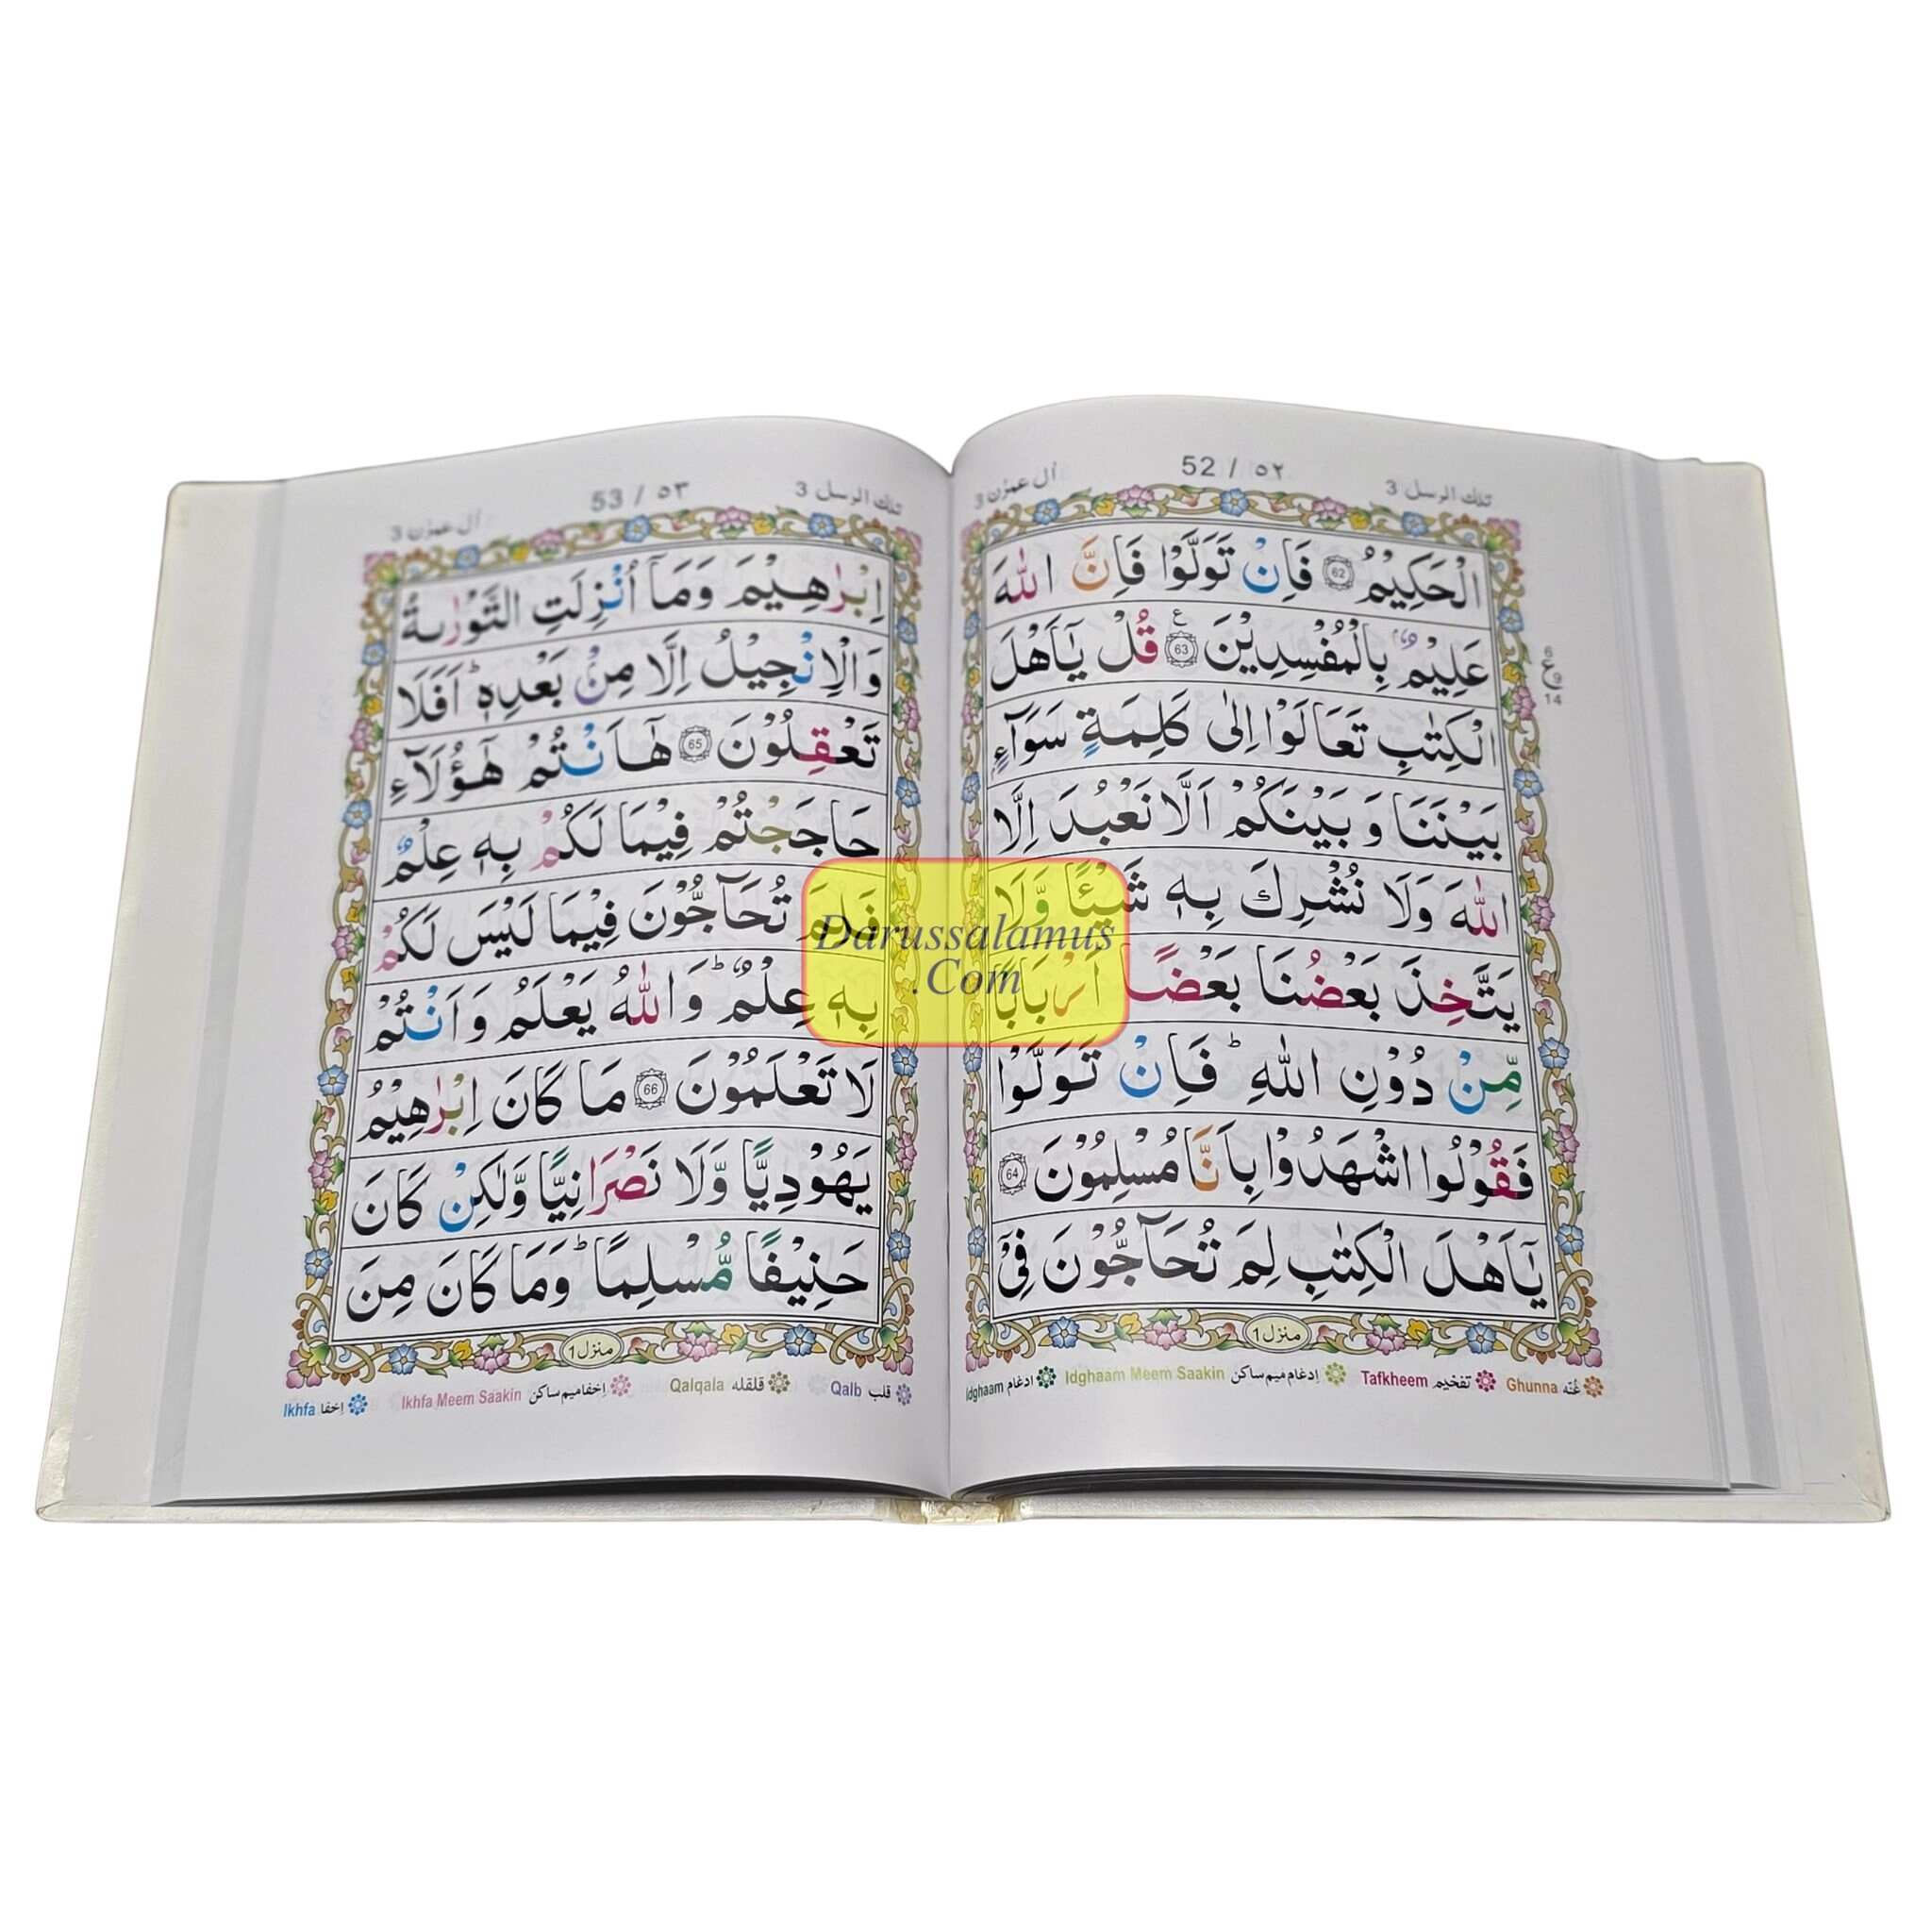 تلك الرسل 3
52 / ٥٢
اٰل عمرٰن 3
الْحَكِيْمُ 62 فَاِنْ تَوَلَّوْا فَاِنَّ اللّٰهَ
عَلِيْمٌۢ بِالْمُفْسِدِيْنَ 63 ع قُلْ يٰۤاَهْلَ
الْكِتٰبِ تَعَالَوْا اِلٰى كَلِمَةٍ سَوَآءٍۭ
بَيْنَنَا وَ بَيْنَكُمْ اَلَّا نَعْبُدَ اِلَّا
اللّٰهَ وَلَا نُشْرِكَ بِهٖ شَيْـًٔا وَّلَا
يَتَّخِذَ بَعْضُنَا بَعْضًا اَرْبَابًا
مِّنْ دُوْنِ اللّٰهِ ؕ فَاِنْ تَوَلَّوْا
فَقُوْلُوا اشْهَدُوْا بِاَنَّا مُسْلِمُوْنَ 64
يٰۤاَهْلَ الْكِتٰبِ لِمَ تُحَآجُّوْنَ فِيْۤ
6
ع 9
14
منزل 1
Ghunna غُنّه
Tafkheem تفخيم
Idghaam Meem Saakin اِدغام ميم ساكن
Idghaam ادغام
تلك الرسل 3
53 / ٥٣
اٰل عمرٰن 3
اِبْرٰهِيْمَ وَمَاۤ اُنْزِلَتِ التَّوْرٰىةُ
وَالْاِنْجِيْلُ اِلَّا مِنْۢ بَعْدِهٖ ؕ اَفَلَا
تَعْقِلُوْنَ 65 هٰۤاَنْتُمْ هٰٓؤُلَآءِ
حَاجَجْتُمْ فِيْمَا لَكُمْ بِهٖ عِلْمٌ
فَلِمَ تُحَآجُّوْنَ فِيْمَا لَيْسَ لَكُمْ
بِهٖ عِلْمٌ ؕ وَاللّٰهُ يَعْلَمُ وَاَنْتُمْ
لَا تَعْلَمُوْنَ 66 مَا كَانَ اِبْرٰهِيْمُ
يَهُوْدِيًّا وَّلَا نَصْرَانِيًّا وَّلٰكِنْ كَانَ
حَنِيْفًا مُّسْلِمًا ؕ وَمَا كَانَ مِنَ
منزل 1
Qalb قلب
Qalqala قلقله
Ikhfa Meem Saakin اِخفا ميم ساكن
Ikhfa اِخفا
Darussalamus
.Com